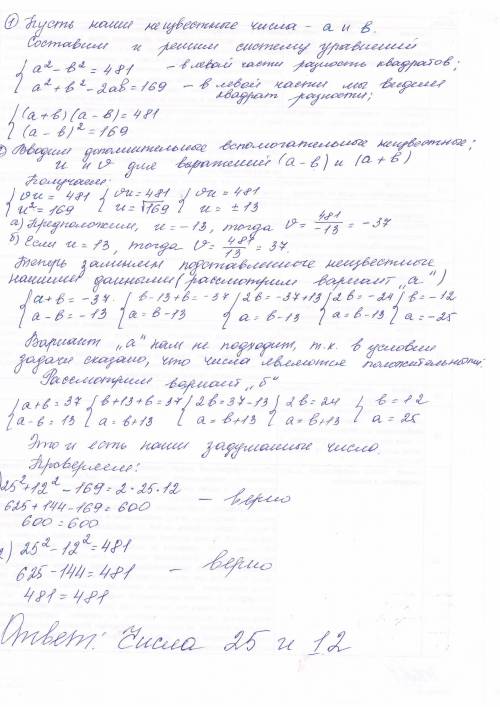 ① Пусть наши неизвестные числа - а и в.
Составим и решим систему уравнений
{ a² - в² = 481 - в левой части разность квадратов;
{ a² + в² - 2ав = 169 - в левой части мы видим квадрат разности;
{ (a + в) (a - в) = 481
{ (a - в)² = 169
Вводим дополнительное вспомогательные неизвестные;
u и v для выражений (a - в) и (a + в)
Получаем:
{ vu = 481 { vu = 481 { vu = 481
{ u² = 169 { u = √169 { u = ±13
а) Предположим, u = -13, тогда v = 481/-13 = -37
б) Если u = 13, тогда v = 481/13 = 37.
Теперь заменим подставленное неизвестное
нашими данными (рассмотрим вариант „а")
{ a + в = -37. { в - 13 + в = -37 { 2в = -37 + 13 { 2в = -24 { в = -12
{ a - в = -13 { a = в - 13 { a = в - 13 { a = в - 13 { a = -25
Вариант „а" нам не подходит, т.к. в условии
задачи сказано, что числа являются положительными.
Рассмотрим вариант „б"
{ a + в = 37 { в + 13 + в = 37 { 2в = 37 - 13 { 2в = 24 { в = 12
{ a - в = 13 { a = в + 13 { a = в + 13 { a = в + 13 { a = 25
Это и есть наши задуманные число.
Проверяем:
) 25² + 12² - 169 = 2 · 25 · 12
625 + 144 - 169 = 600 - верно
600 = 600
) 25² - 12² = 481
625 - 144 = 481 - верно
481 = 481
Ответ: Числа 25 и 12